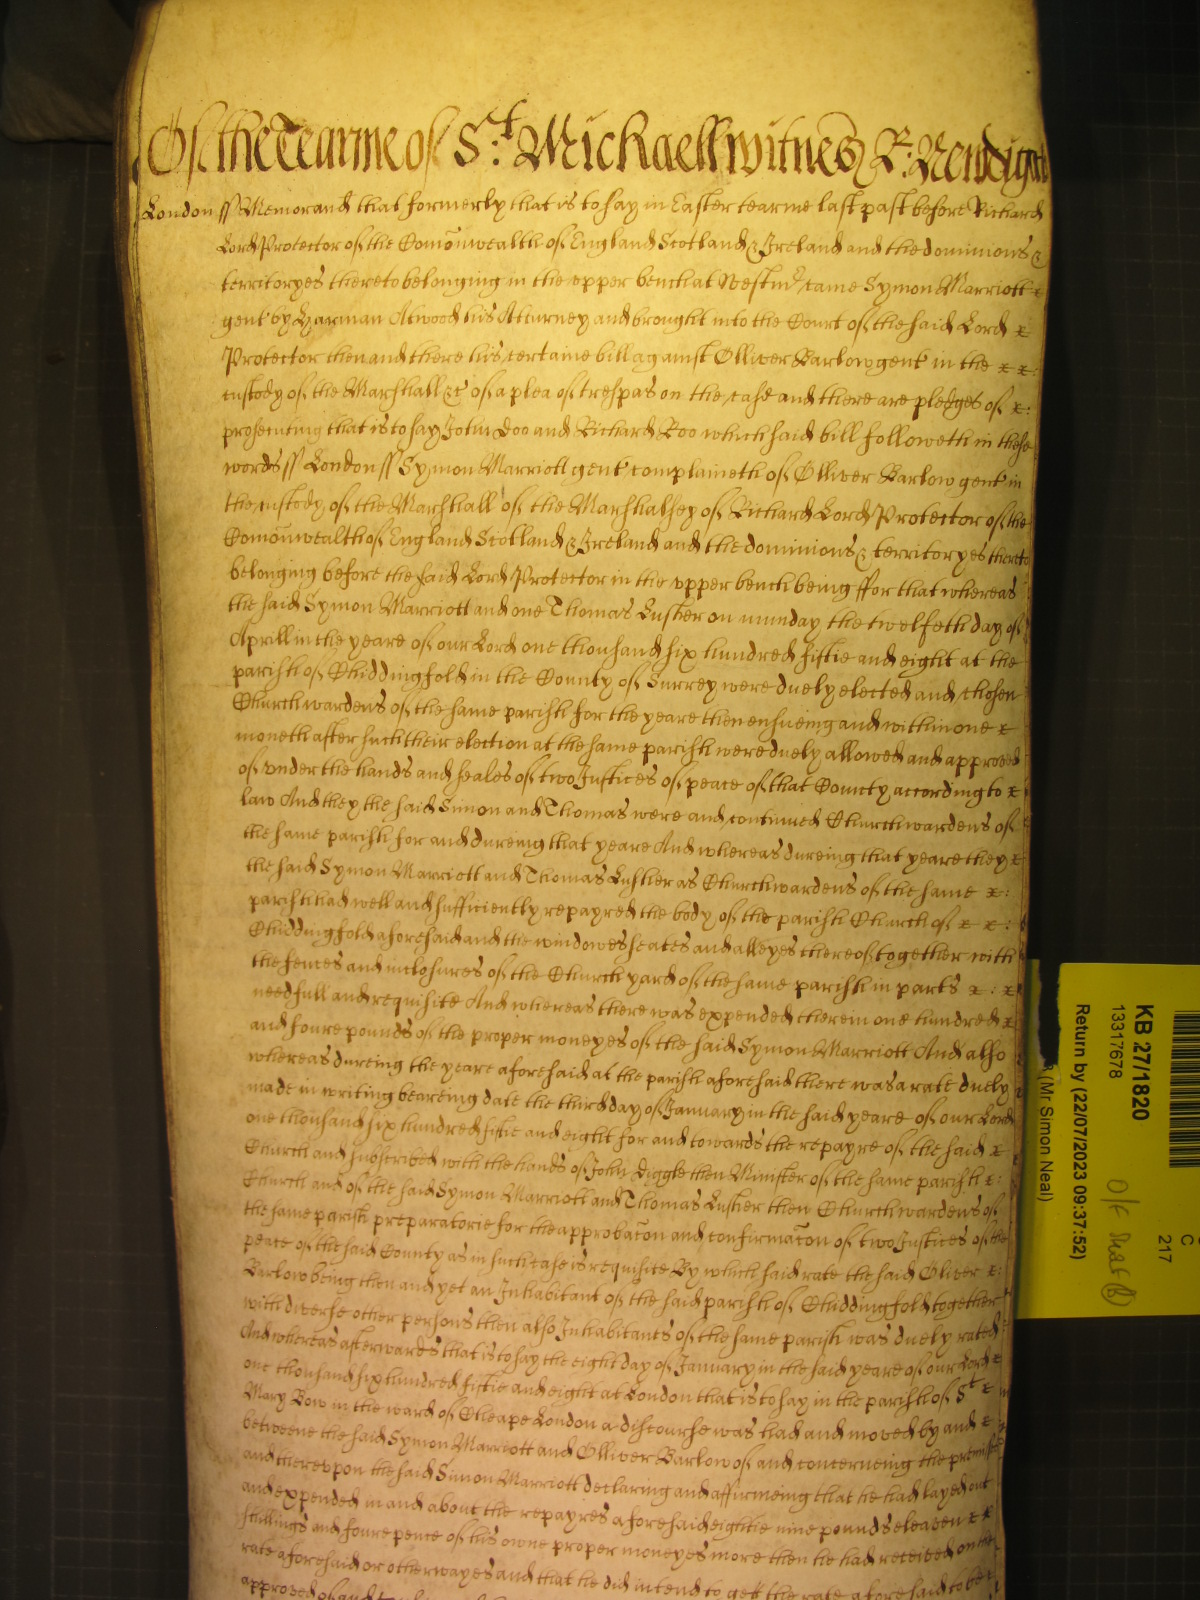 Of the Tearme of St: Michaell witnes R: Newdigate
London ss Memorand that formerly that is to say in Easter tearme last past before Richard
Lord Protector of the Comonwealth of England Scotland & Ireland and the dominions &
territoryes thereto belonging in the upper bench at Westmr came Symon Marriott
gent by Harman Atwood his Atturney and brought into the Court of the said Lord
Protector then and there his certaine bill against Olliver Barlow gent in the
custody of the Marshall &c of a plea of trespas on the case and there are pledges of
prosecuting that is to say John Doo and Richard Roo which said bill followeth in these
words ss London ss Symon Marriott gent complaineth of Olliver Barlow gent in
the custody of the Marshall of the Marshalsey of Richard Lord Protector of the
Comonwealth of England Scotland & Ireland and the dominions & territoryes thereto
belonging before the said Lord Protector in the vpper bench being ffor that whereas
the said Symon Marriott and one Thomas Lusher on munday the twelfeth day of
Aprill in the yeare of our Lord one thousand six hundred fiftie and eight at the
parish of Chiddingfold in the County of Surrey were duely elected and chosen
Churchwardens of the same parish for the yeare then ensueing and within one
moneth after such their election at the same parish were duely allowed and approved
of vnder the hands and seales of two Justices of peace of that County according to
law And they the said Simon and Thomas were and continued Churchwardens of
the same parish for and dureing that yeare And whereas dureing that yeare they
the said Symon Marriott and Thomas Lusher as Churchwardens of the same
parish had well and sufficiently repayred the body of the parish Church of
Chiddingfold aforesaid and the windowes seates and alleyes thereof together with
the fences and inclosures of the Church yard of the same parish in parts
needfull and requisite And whereas there was expended therein one hundred
and foure pounds of the proper moneyes of the said Symon Marriott And also
whereas dureing the yeare aforesaid at the parish aforesaid there was a rate duely
made in writing beareing date the third day of January in the said yeare of our Lord
one thousand six hundred fiftie and eight for and towards the repayre of the said
Church and subscribed with the hands of John Diggle then Minister of the same parish
Church and of the said Symon Marriott and Thomas Lusher then Churchwardens of
the same parish preparatorie for the approbacon and confirmacon of two Justices of the
peace of the said County as in such case is requisite By which said rate the said Oliver
Barlow being then and yet an Inhabitant of the said parish of Chiddingfold together
with diverse other persons then also Inhabitants of the same parish was duely rated
And whereas afterwards that is to say the eight day of January in the said yeare of our Lord
one thousand six hundred fiftie and eight at London that is to say in the parish of St
Mary Bow in the ward of Cheape London a discourse was had and moved by and
betweene the said Symon Marriott and Olliver Barlow of and concerneing the premisses
and therevpon the said Simon Marriott declaring and affirmeing that he had layed out
and expended in and about the repayres aforesaid eightie nine pounds eleaven
shillings and foure pence of his owne proper moneyes more then he had received on the
rate aforesaid or otherwayes and that he did intend to gett the rate aforesaid to be
approved of and
KB 27/1820
13317678
Return by (22/07/2023 09:37:52)
(Mr Simon Neal)
C
217